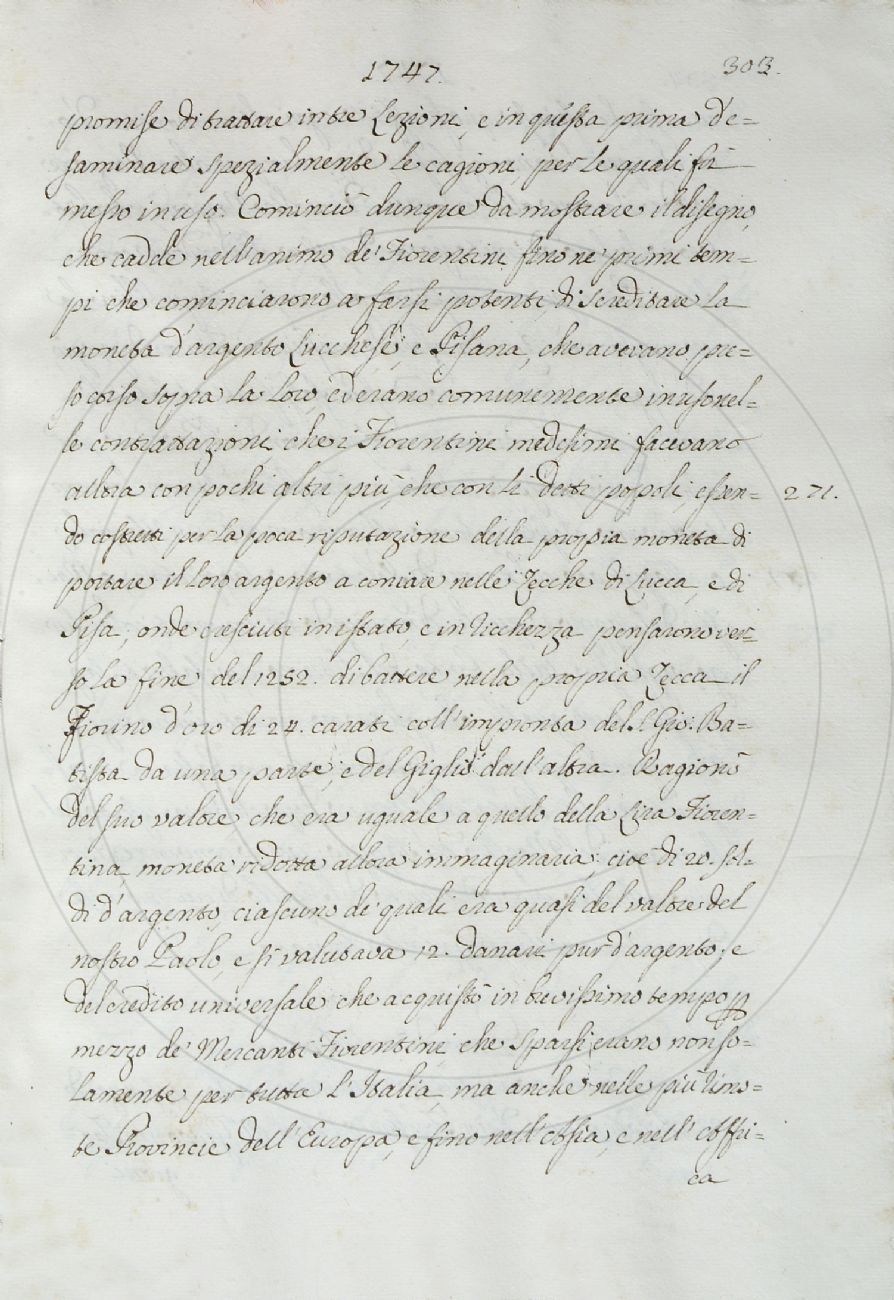 1747.
303.
promise di trattare in tre Lezioni, e in questa prima d'e=
saminare spezialmente le cagioni, per le quali fù
messo in uso. Cominciò dunque da mostrare il disegno,
che cadde nell'animo de' Fiorentini fino ne' primi tem=
pi che cominciarono a farsi potenti, di screditare la
moneta d'argento Lucchese, e Pisana, che avevano pre=
so corso sopra la loro, ed erano comunemente in uso nel=
le contrattazioni che i Fiorentini medesimi facevano
allora con pochi altri più, che con li detti popoli, essen=
271.
do costretti per la poca riputazione della propia moneta di
portare il loro argento a coniare nelle Zecche di Lucca, e di
Pisa; onde cresciuti in istato, e in ricchezza pensarono ver=
so la fine del 1252. di battere nella propria Zecca il
Fiorino d'oro di 24. carati coll'impronta del S. Gio: Ba=
tista da una parte, e del Giglio dall'altra. Ragionò
del suo valore che era uguale a quello della Lira Fioren=
tina, moneta ridotta allora immaginaria; cioè di 20. sol=
di d'argento, ciascuno de' quali era quasi del valore del
nostro Paolo, e si valutava 12. danari pur d'argento; e
del credito universale che acquistò in brevissimo tempo p
mezzo de' Mercanti Fiorentini, che sparsi erano non so=
lamente per tutta l'Italia, ma anche nelle più rimo=
te Provincie dell'Europa, e fino nell'Assia, e nell'Affri=
ca